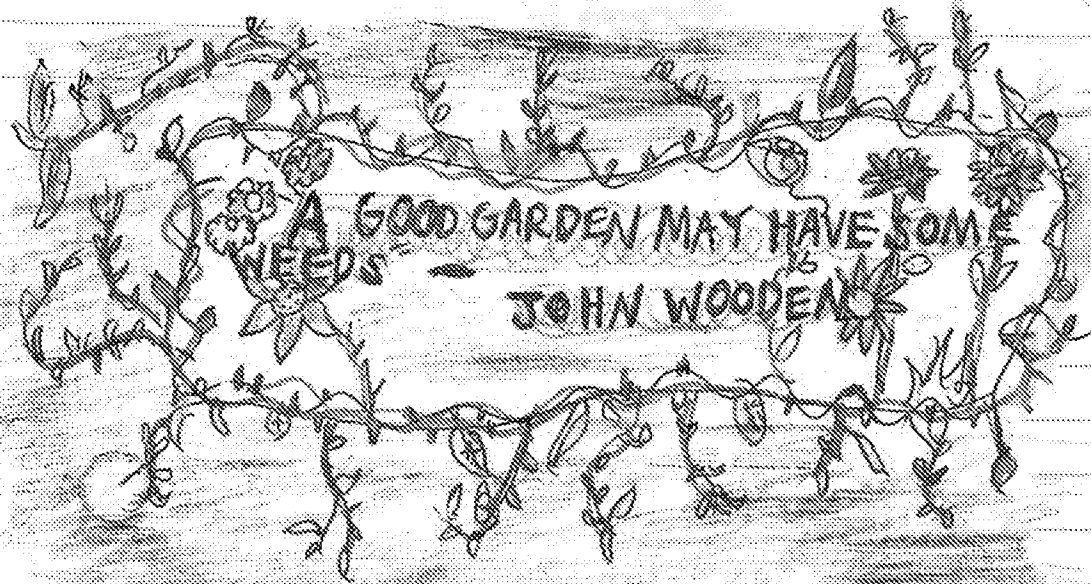 A GOOD GARDEN MAY HAVE SOME
WEEDS" -
JOHN WOODEN